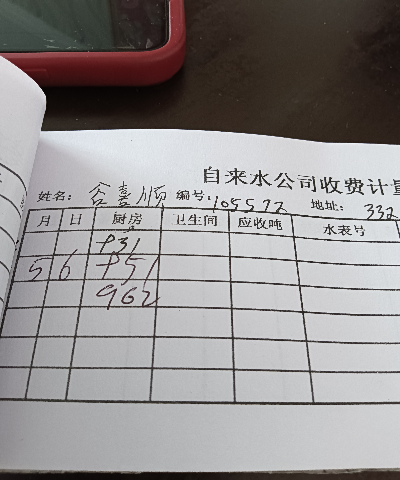 自来水公司收费计量
姓名: 喜顺 编号: 105572 地址: 332
月 日 厨房 卫生间 应收吨 水表号
931
5 6 951
962